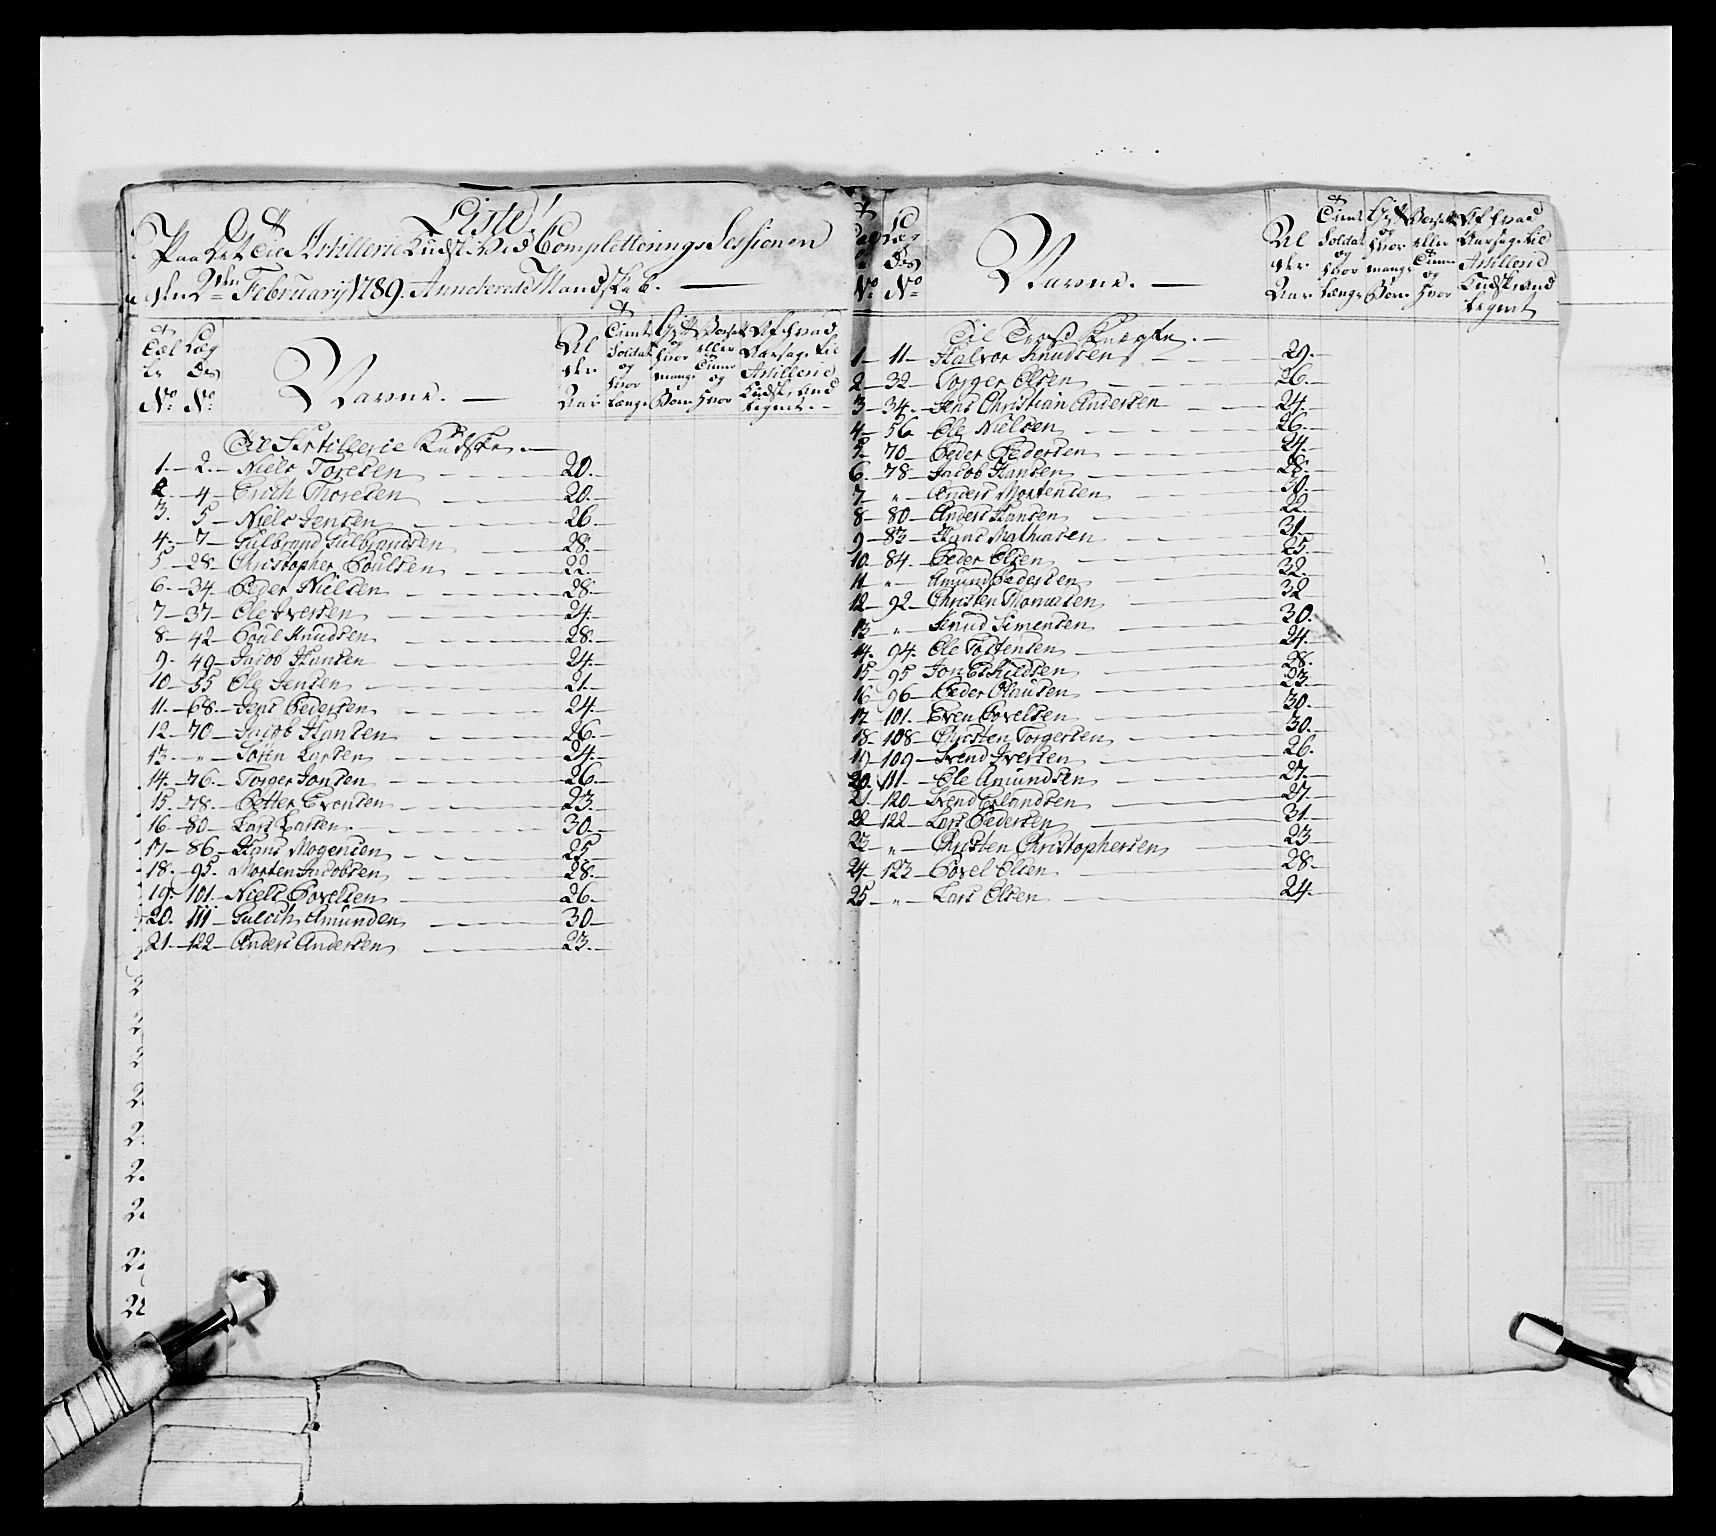 Liste!
Paa Det til Artillerie Kudsk: Ved Completterings Sessionen
den 2den February 1789. Annoterede Mandskab. —
Tæl Læg
le Des
No. No.
Navne. —
Al
der
Aar
Tient
Soldat
og
hvor
længe
Gift
og
hvor
mange
Børn
eller
og
hvor
Af hvad
Aarsag til
Artillerie
Kudsk, And
tegnet. —
Til Artillerie Kudske. —
1. — 2. — Niels Toresen 20. —
2. — 4 — Erich Thoresen 20. —
3. 5 — Niels Jensen 26. —
4. — 7 — Gulbrand Gulbrandsen 28. —
5 — 28. — Christopher Poulsen 22. —
6 — 34. — Peder Nielsen 28. —
7 — 37. — Ole Iversen 24. —
8 — 42 — Poul Knudsen 28. —
9. 49 — Jacob Hansen 24. —
10 — 55 Ole Jensen 21. —
11. — 68. — Jens Pedersen 24. —
12 — 70 — Jacob Hansen 26. —
13 — " — Søren Larsen 24. —
14. — 76. — Torger Jonsen 26. —
15. — 78. — Petter Evensen 23. —
16. — 80 — Lars Larsen 30. —
17 — 86 — Hans Mogensen 25. —
18. — 95. — Morten Jacobsen 28. —
19. 101. — Niels Povelsen 26. —
20. — 111 — Gulich Amunden 30 —
21. — 122 — Anders Andersen 23. —
Læg
Des
No. No.
Navne. —
Al
der
Aar
Tient
Soldat
og
hvor
længe
Gift
og
hvor
mange
Børn
eller
og
hvor
Af hvad
Aarsag til
Artillerie
Kudsk, And
tegnet
Til Tros Knegte. —
1 — 11 — Halvor Knudsen 29. —
2 — 32 — Torger Olsen 26. —
3 — 34. — Jens Christian Andersen 24. —
4 — 56 Ole Nielsen 26. —
5 — 70 — Peder Pedersen 24. —
6. — 78 — Jacob Hansen 28. —
7 — " — Anders Mortensen 30. —
8 — 80 — Anders Hansen 22. —
9 — 83 — Hans Mathiasen 31. —
10 — 84. — Peder Olsen 25. —
11 — " — Amund Pedersen 32. —
12 — 92 — Christen Thomesen 32 —
13 — " — Knud Simensen 30. —
14. 94. — Ole Torstensen 24. —
15 — 95 — Jon Eskildsen 28. —
16 96 — Peder Clausen 23. —
17 — 101. — Even Povelsen 30. —
18 — 108 — Christen Torgersen 30. —
19 109 — Svend Iversen 26. —
20. 111 — Ole Amundsen 27. —
21 — 120 — Svend Erlandsen 27. —
22 — 122 — Lars Pedersen 31. —
23 — " — Christen Christophersen 23 —
24. — 123 — Povel Olsen 28. —
25 — " — Lars Olsen 24. —